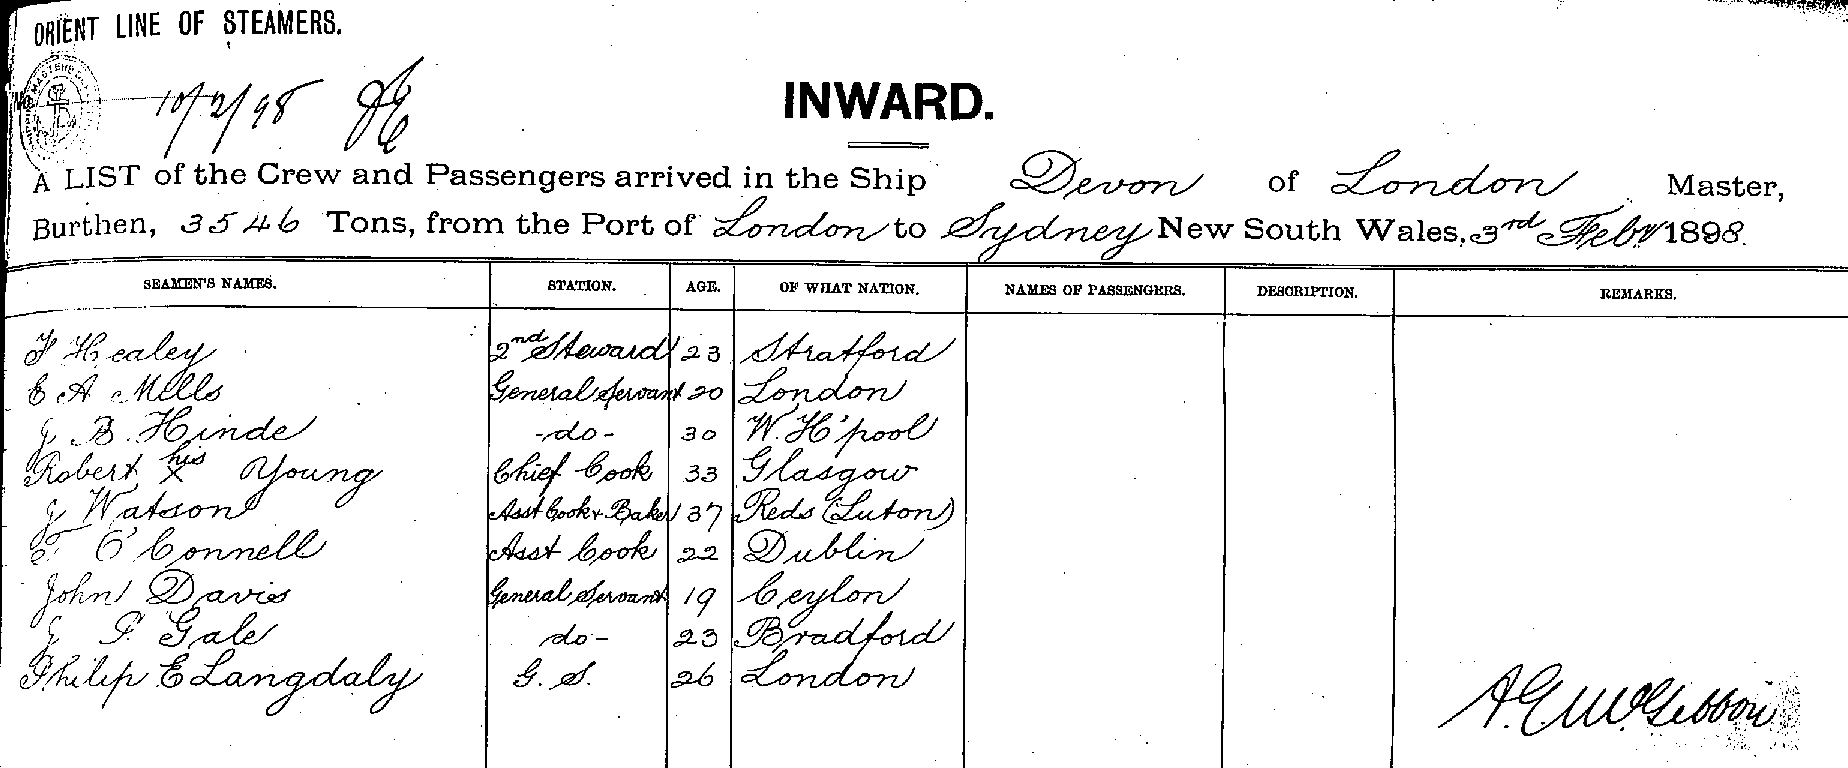 ORIENT LINE OF STEAMERS.
10/2/98
INWARD.
A LIST of the Crew and Passengers arrived in the Ship Devon of London Master,
Burthen, 3546 Tons, from the Port of London to Sydney New South Wales, 3rd Feby 1898.
SEAMEN'S NAMES. STATION. AGE. OF WHAT NATION. NAMES OF PASSENGERS. DESCRIPTION. REMARKS.
F Healey 2nd Steward 23 Stratford
E A Mills General Servant 20 London
J B. Hinde -do- 30 W. H'pool
Robert his x Young Chief Cook 33 Glasgow
J Watson Asst Cook & Baker 37 Beds (Luton)
T O'Connell Asst Cook 22 Dublin
John Davis General Servant 19 Ceylon
J P. Gale do- 23 Bradford
Philip E Langdaly G. S. 26 London
A.E. McGibbon